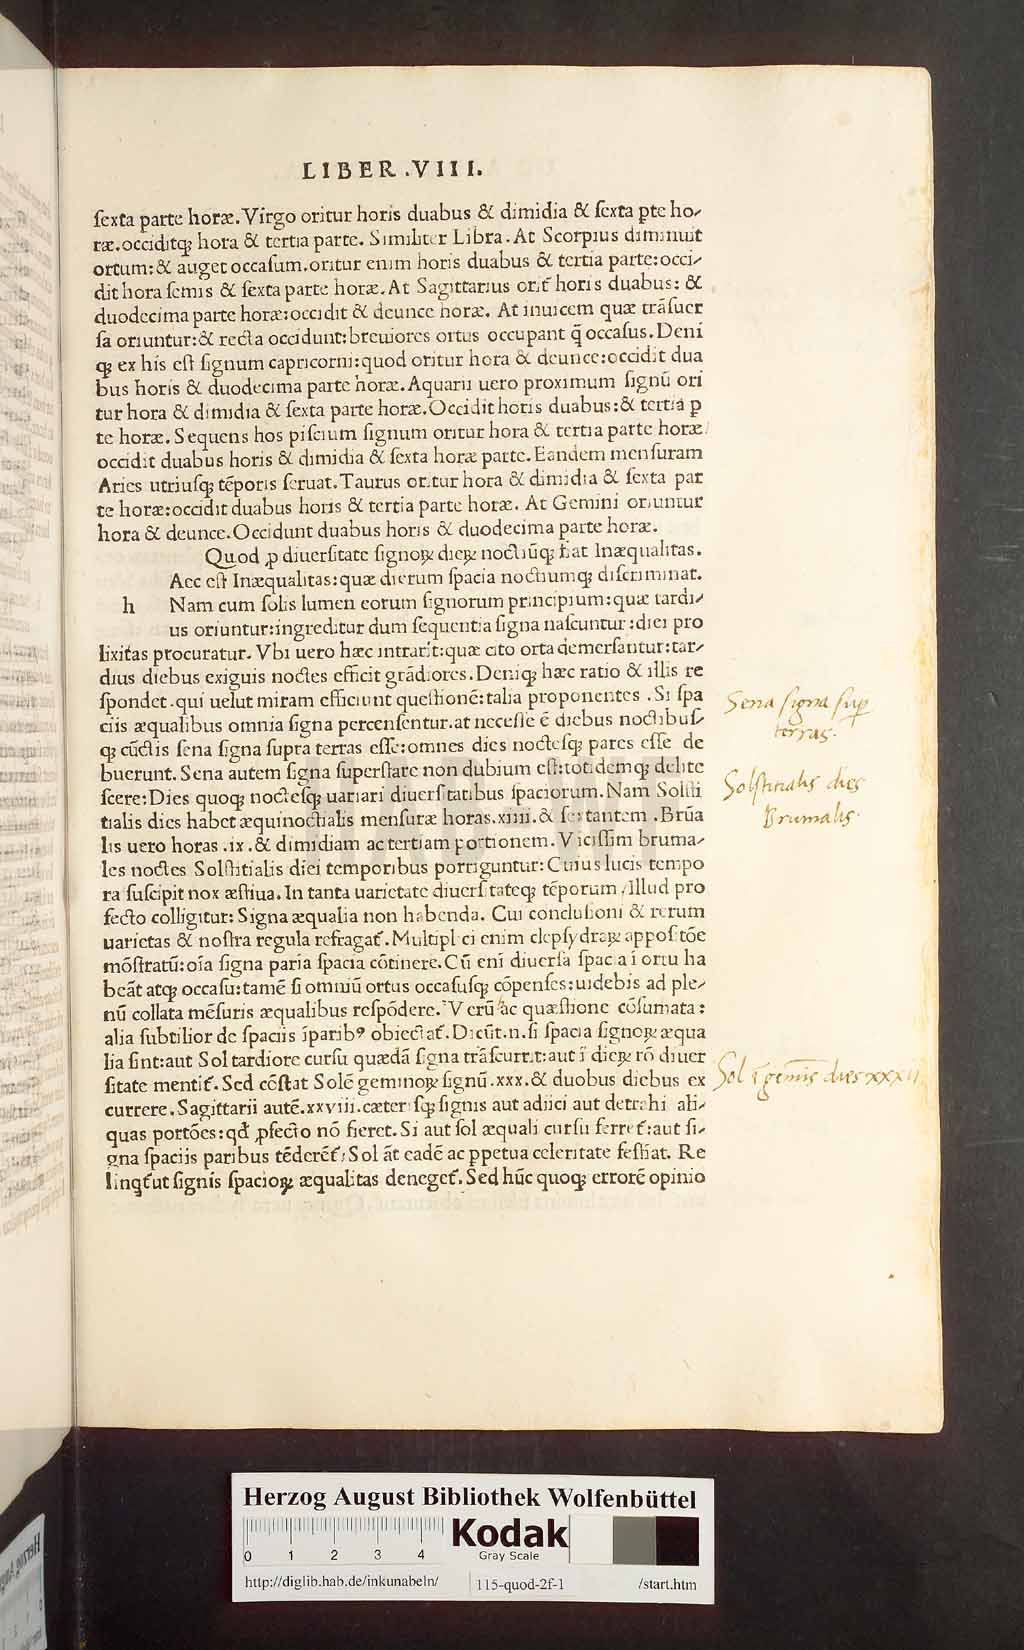 LIBER .VIII.
sexta parte horæ. Virgo oritur horis duabus & dimidia & sexta ꝑte ho⸗
ræ. occiditqꝫ hora & tertia parte. Similiter Libra. At Scorpius diminuit
ortum: & auget occasum. oritur enim horis duabus & tertia parte: occi⸗
dit hora semis & sexta parte horæ. At Sagittarius orit᷑ horis duabus: &
duodecima parte horæ: occidit & deunce horæ. At inuicem quæ trãsuer
sa oriuntur: & recta occidunt: breuiores ortus occupant q̃ occasus. Deni
qꝫ ex his est signum capricorni: quod oritur hora & deunce: occidit dua
bus horis & duodecima parte horæ. Aquarii uero proximum signũ ori
tur hora & dimidia & sexta parte horæ. Occidit horis duabus: & tertia ꝑ
te horæ. Sequens hos piscium signum oritur hora & tertia parte horæ:
occidit duabus horis & dimidia & sexta horæ parte. Eandem mensuram
Aries utriusqꝫ tẽporis seruat. Taurus oritur hora & dimidia & sexta par
te horæ: occidit duabus horis & tertia parte horæ. At Gemini oriuntur
hora & deunce. Occidunt duabus horis & duodecima parte horæ.
Quod ꝓ diuersitate signoꝝ dieꝝ noctiũqꝫ fiat Inæqualitas.
Aec est Inæqualitas: quæ dierum spacia noctiumqꝫ discriminat.
h Nam cum solis lumen eorum signorum principium: quæ tardi⸗
us oriuntur: ingreditur dum sequentia signa nascuntur: diei pro
lixitas procuratur. Vbi uero hæc intrarit: quæ cito orta demersantur: tar⸗
dius diebus exiguis noctes efficit grãdiores. Deniqꝫ hæc ratio & illis re
spondet. qui uelut miram efficiunt questionẽ: talia proponentes. Si spa
ciis æqualibus omnia signa percensentur. at necesse ẽ diebus noctibus⸗
qꝫ cũctis sena signa supra terras esse: omnes dies noctesqꝫ pares esse de
buerunt. Sena autem signa superstare non dubium est: totidemqꝫ delite
scere: Dies quoqꝫ noctesqꝫ uariari diuersitatibus spaciorum. Nam Solsti
tialis dies habet æquinoctialis mensuræ horas. xiiii. & sextantem. Brũa
lis uero horas .ix. & dimidiam ac tertiam portionem. Vicissim bruma⸗
les noctes Solstitialis diei temporibus porriguntur: Cuius lucis tempo
ra suscipit nox æstiua. In tanta uarietate diuersitateqꝫ tẽporum / Illud pro
fecto colligitur: Signa æqualia non habenda. Cui conclusioni & rerum
uarietas & nostra regula refragat᷑. Multiplici enim clepsydraꝝ appositõe
mõstratũ: oĩa signa paria spacia cõtinere. Cũ enĩ diuersa spacia ĩ ortu ha
beãt atqꝫ occasu: tamẽ si omniũ ortus occasusqꝫ cõpenses: uidebis ad ple⸗
nũ collata mẽsuris æqualibus respõdere. Verũ hac quæstione cõsumata:
alia subtilior de spaciis ĩparibꝰ obiectat᷑. Dicũt .n. si spacia signoꝝ æqua
lia sint: aut Sol tardiore cursu quædã signa trãscurrit: aut ĩ dieꝝ rõ diuer
sitate mentit᷑. Sed cõstat Solẽ geminoꝝ signũ .xxx. & duobus diebus ex
currere. Sagittarii autẽ .xxviii. cæterisqꝫ signis aut adiici aut detrahi ali⸗
quas portões: qđ ꝓfecto nõ fieret. Si aut sol æquali cursu ferret᷑: aut si⸗
gna spaciis paribus tẽderẽt᷑: Sol ãt eadẽ ac ꝑpetua celeritate festiat. Re
linqt᷑ ut signis spacioꝝ æqualitas deneget᷑. Sed hũc quoqꝫ errorẽ opinio
Sena signa sup
terras.
Solstitialis dies
Brumalis.
Sol ĩ gemĩs dies xxxii
HAB-WF
Herzog August Bibliothek Wolfenbüttel
0 1 2 3 4
Kodak
Gray Scale
http://diglib.hab.de/inkunabeln/ 115-quod-2f-1 /start.htm